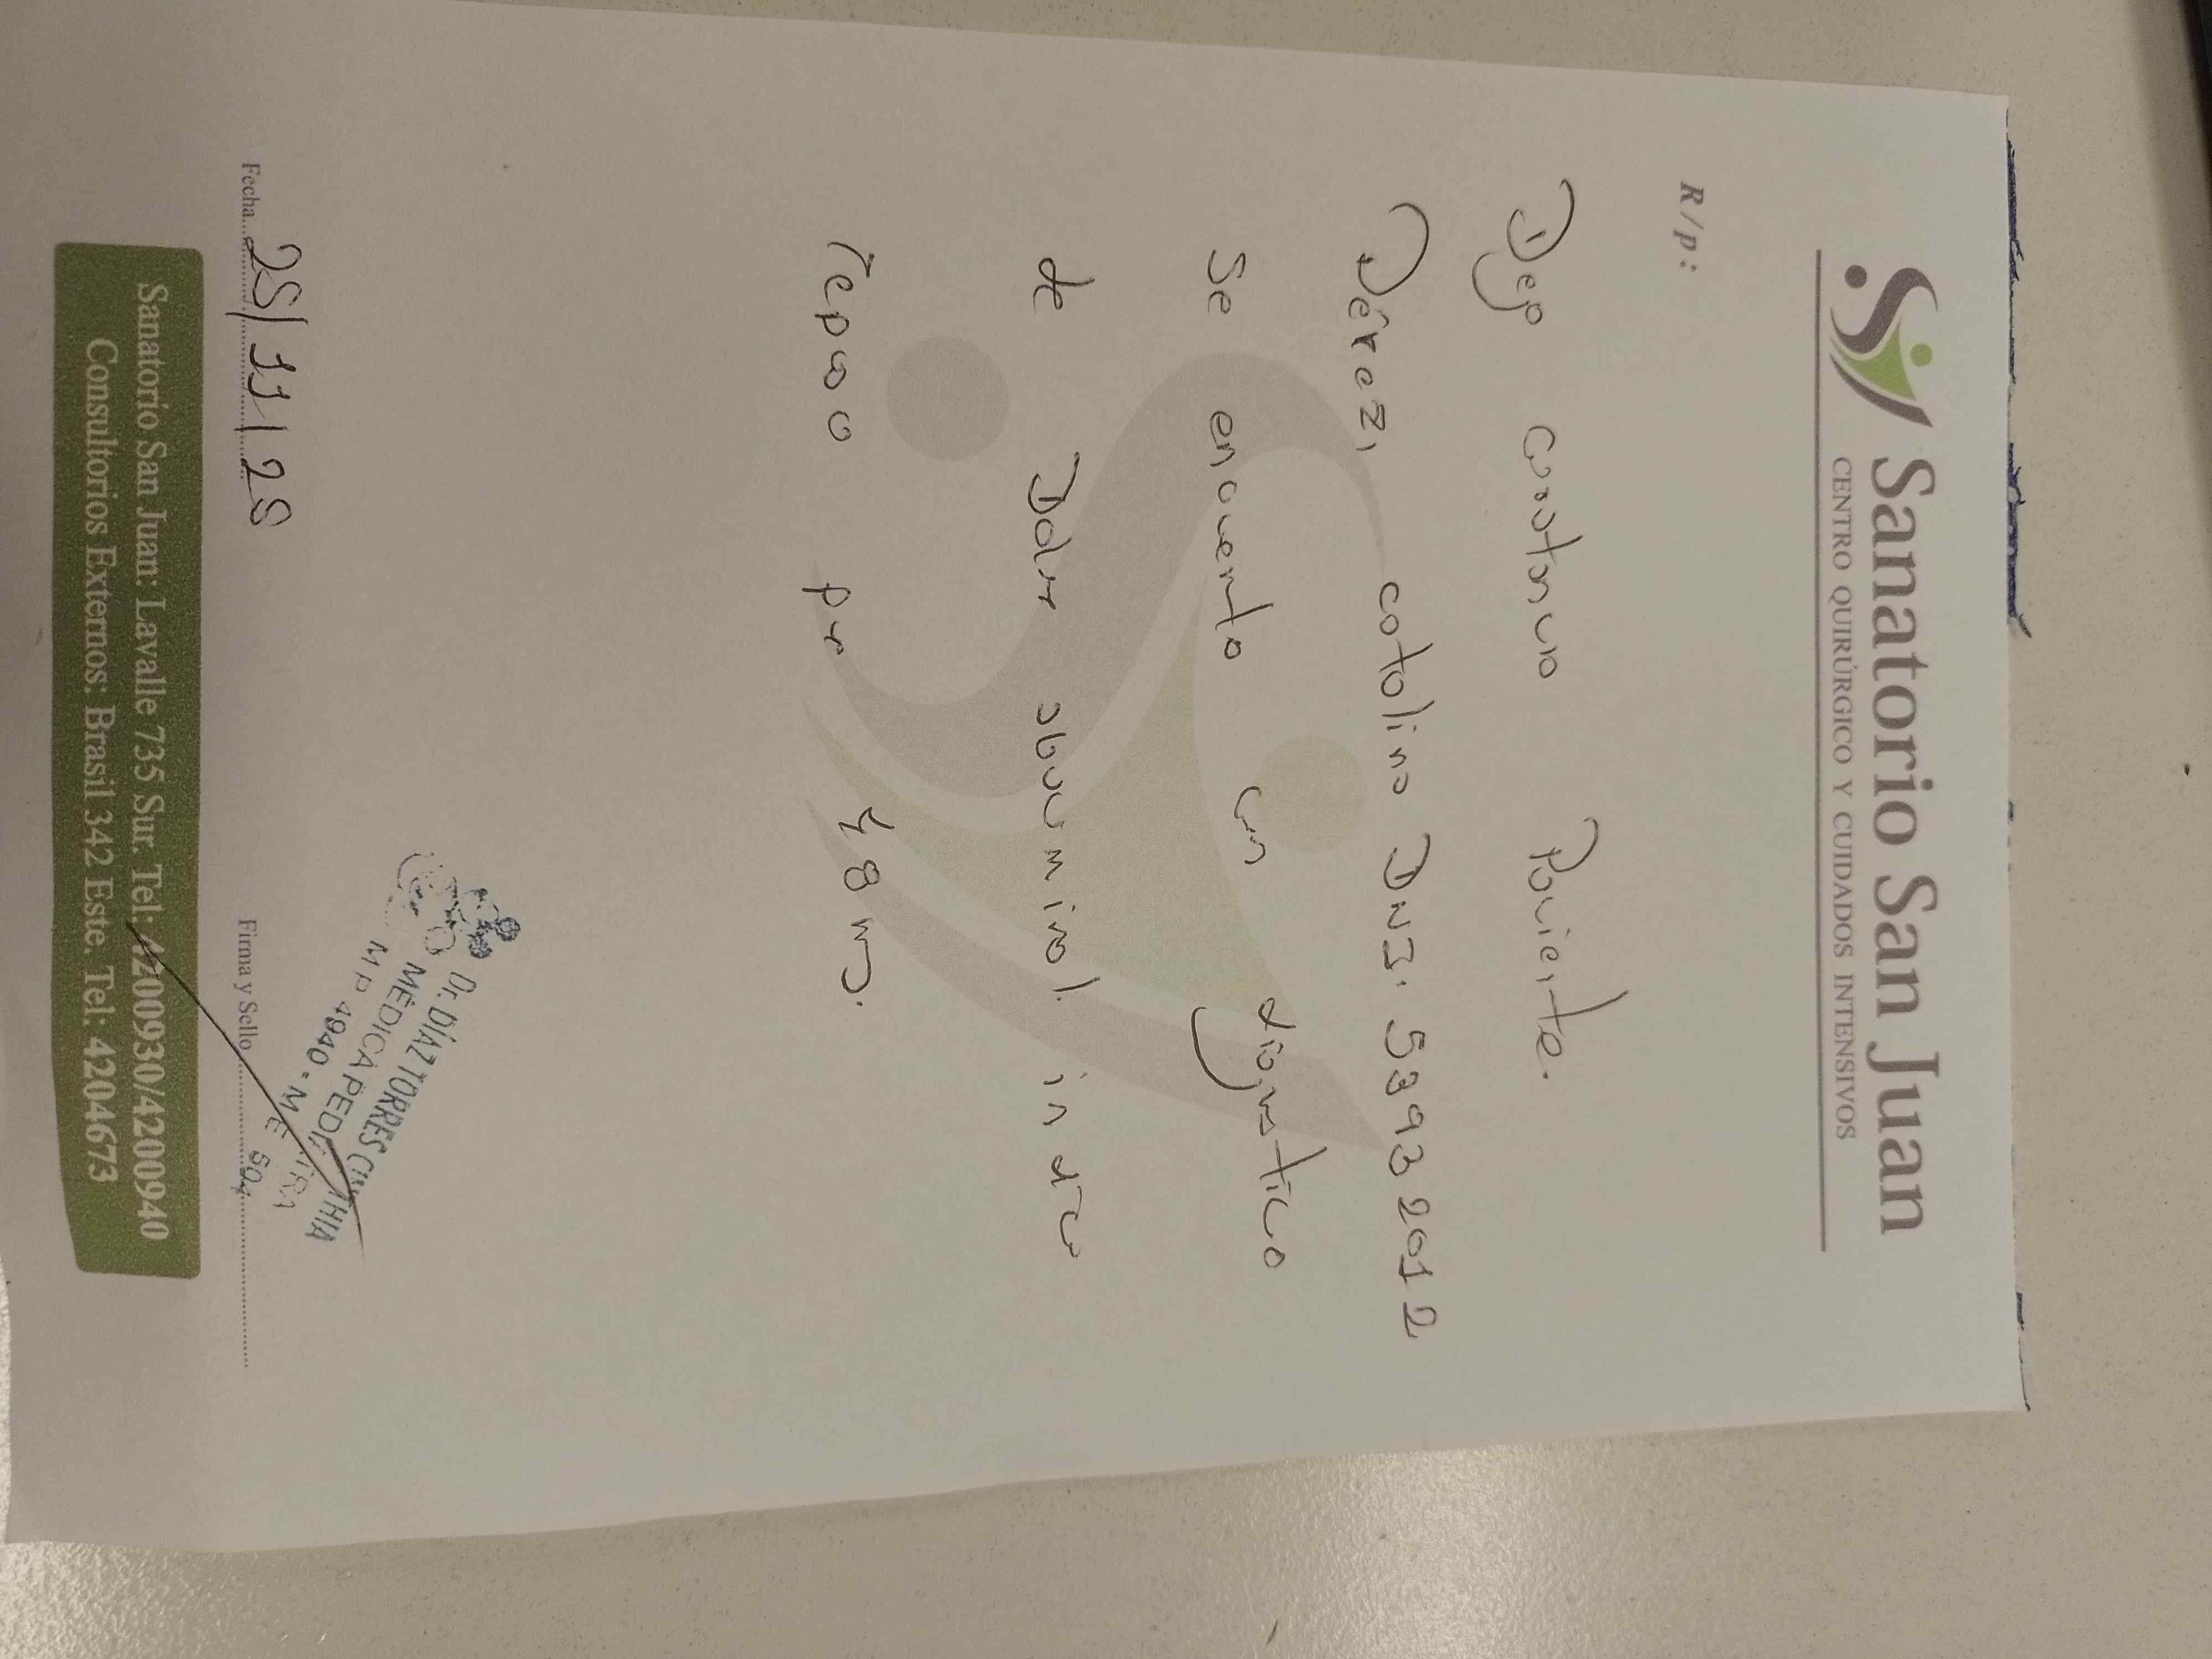 Sanatorio San Juan
CENTRO QUIRÚRGICO Y CUIDADOS INTENSIVOS
R/p:
Dejo constancia Paciente.
Perez, catalina DNI. 58932012
Se encuentra con diagnostico
de Dolor abdominal. indico
reposo por 48 hs.
Fecha 25/11/25
Dr. DÍAZ TORRES CINTHIA
MÉDICA PEDIATRA
MP 4940 - ME
Firma y Sello
Sanatorio San Juan: Lavalle 735 Sur. Tel: 4200930/4200940
Consultorios Externos: Brasil 342 Este. Tel: 4204673